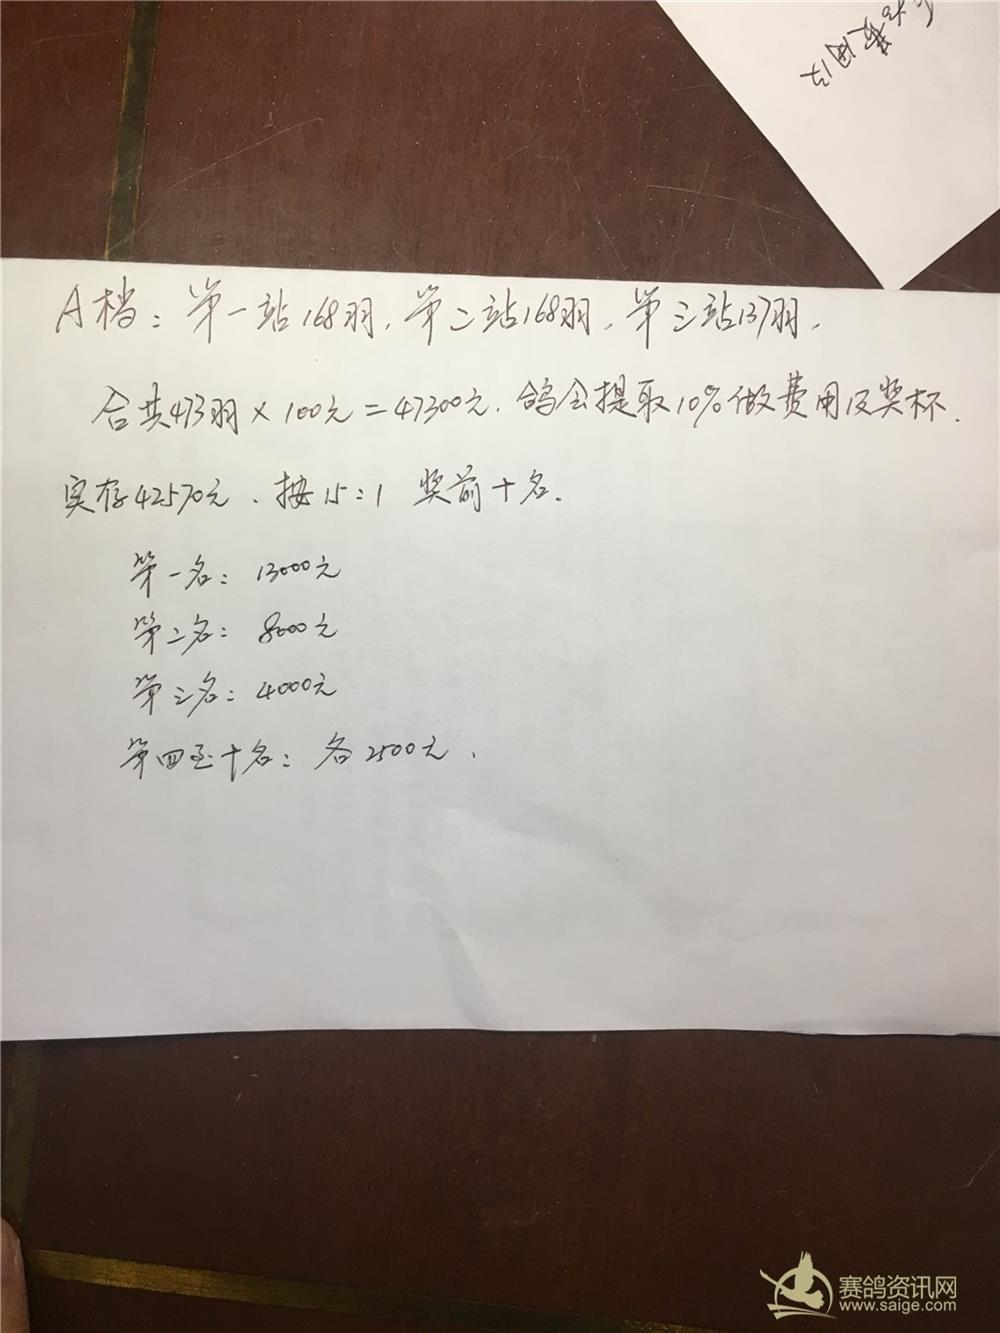 A档：第一站168羽，第二站168羽，第三站137羽，
合共473羽×100元=47300元，鸽会提取10%做费用及奖杯.
实存42570元，按15:1 奖前十名.
第一名：13000元
第二名：8000元
第三名：4000元
第四至十名：各2500元.
赛鸽资讯网
www.saige.com